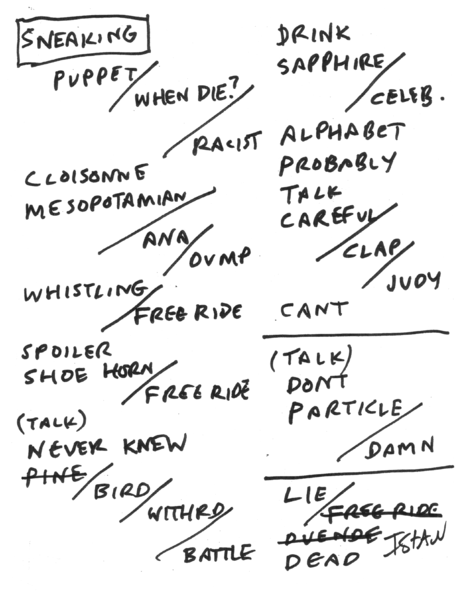 SNEAKING
PUPPET/
WHEN DIE?/
RACIST
CLOISONNE
MESOPOTAMIAN/
ANA/
DUMP
WHISTLING/
FREE RIDE
SPOILER
SHOE HORN/
FREE RIDE
(TALK)
NEVER KNEW
PINE/
BIRD/
WITHRD/
BATTLE
DRINK
SAPPHIRE/
CELEB.
ALPHABET
PROBABLY
TALK
CAREFUL/
CLAP/
JUDY
CANT
(TALK)
DONT
PARTICLE/
DAMN
LIE/
FREE RIDE
DEAD ISTAN